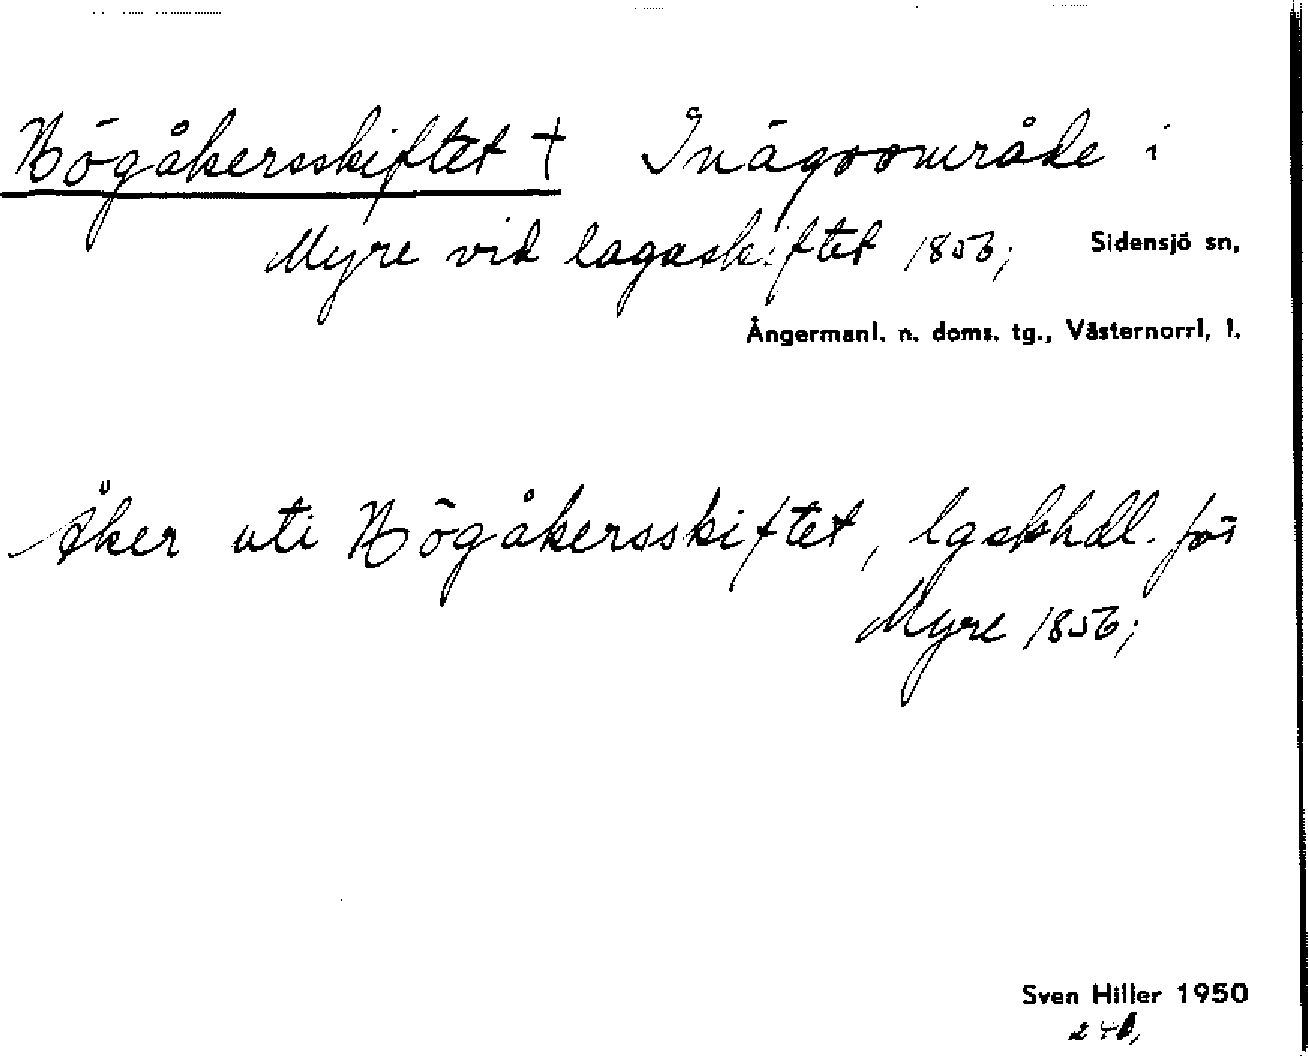 Högåkersskiftet + Inägoområde i
Myre vid lagaskiftet 1856;
Sidensjö sn,
Ångermanl. n. doms. tg., Västernorrl. l.
Åker uti Högåkersskiftet, lgskhdl. för
Myre 1856;
Sven Hiller 1950